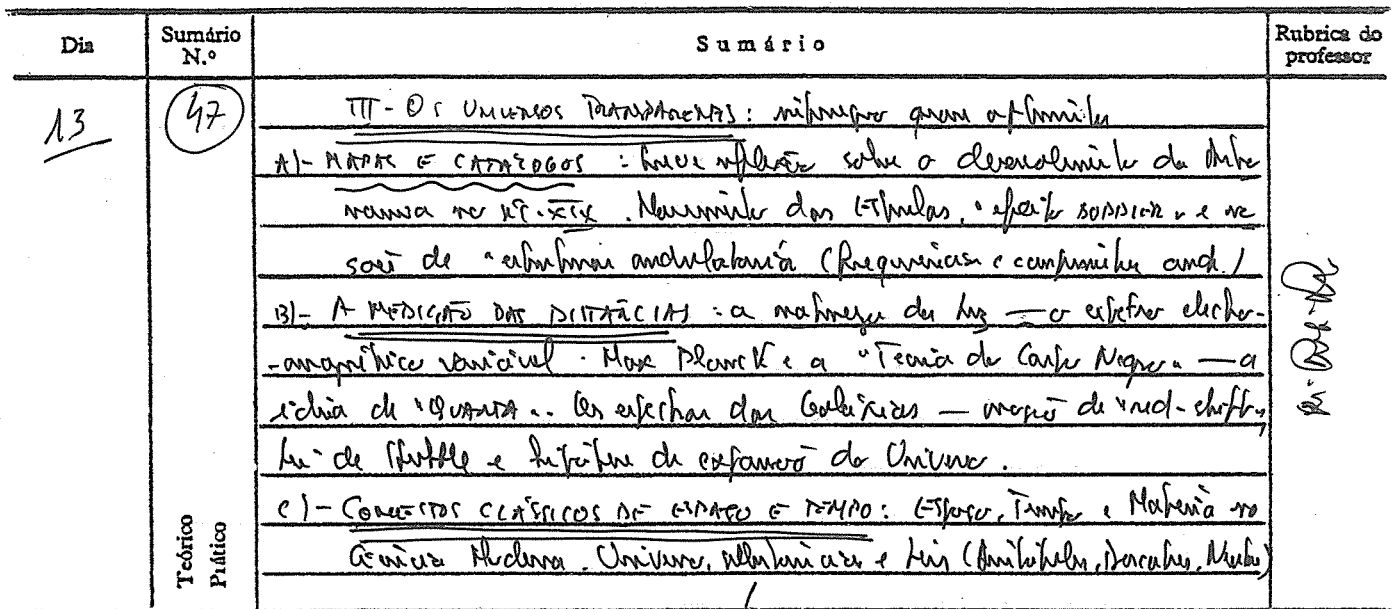 Dia Sumário N.º Sumário Rubrica do professor
13 47 III - OS UNIVERSOS TRANSPARENTES:
A) - MAPAS E CATÁLOGOS : breve reflexão sobre o desenvolvimento da
no XIX . das Estrelas, "efeito DOPPLER" e
de ondulatória (frequências e comprimentos ond.)
B) - A MEDIÇÃO DAS DISTÂNCIAS : a natureza da luz — o espectro electro-
-magnético variável . Max Planck e a "Teoria do Corpo Negro" — a
ideia de "QUANTA". Os espectros das Galáxias — noção de "red-shift",
Lei de Hubble e hipótese de expansão do Universo.
C) - CONCEITOS CLÁSSICOS DE ESPAÇO E TEMPO: Espaço, Tempo e Matéria na
Ciência Moderna. Universo, substâncias e Leis (Aristóteles, Descartes, Newton)
Teórico
Prático